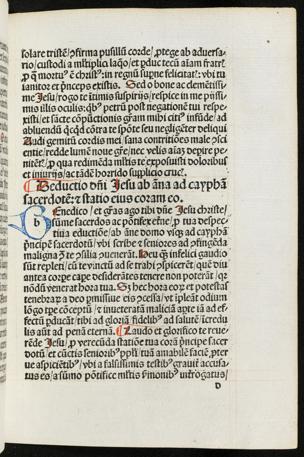 solare tristē ꝯfirma pusillū corde, ꝓtege ab aduersa-
rio, custodi a mĺtiplici laq̄o, et ꝑduc tecū aīam fratrē
ꝓ q̄ mortuꝰ ē christꝰ: in regniū supne felicitatꝭ: vbi tu
ianitor et p̄nceps existis. Sed o bone ac clemētissi-
me Jesu, rogo te ītimis suspirijs, respice in me pijssi-
mis illis oculis: qbꝰ petrū post negationē tui respe-
xisti, et sācte cōpūctionis gr̄am mihi citiꝰ infūde, ad
abluendū qcqd cōtra te spōte seu negligēter deliqui
Audi gemitū cordis mei, sana contritiōes male ꝯsci
entie, redde lumē noue gr̄e, nec velis aīaꝫ depire pe-
nitēt, ꝓ qua redimēda mĺtis te exposuisti doloribus
et iniurijs, ac tādē horrido supplicio crucꝭ.
Deductio dn̄i Jesu ab āna ad cayphā
sacerdotē: ⁊ statio eius coram eo.
Benedico, et gr̄as ago tibi dn̄e Jesu christe,
sūme sacerdos ac pōtifex etne, ꝓ tua despec-
tiua eductiōe, ab āne domo vsqꝫ ad caypham
p̄ncipē sacerdotū, vbi scribe ⁊ seniores ad ꝯfingēda
maligna ī te ꝯsilia ꝯuenerāt. Heu q̄ infelici gaudio
sūt repleti, cū te vinctū ad se trabi ꝯspicerēt, quē diu
antea corpe cape desiderātes tenere non poterāt, qr
nōdū venerat hora tua. Sꝫ hec hora eoꝝ et potestas
tenebraꝝ a deo ꝑmissiue eis ꝯcessa, vt īpleāt odium
lōgo tpe cōceptū, ⁊ inueterata maliciā apte iā ad ef-
fectū ꝑducāt, tibi ad gloriā fidelibꝰ ad salutē icredu
lis aūt ad penā eternā. Laudo et glorifico te reue-
rēde Jesu, ꝓ verecūda statiōe tua corā p̄ncipe sacer
dotū et cūctis senioribꝰ ppli, tuā amiabilē faciē ꝓter
ue aspiciētibꝰ, vbi a falsissimis testibꝰ grauit accusa-
tus es, a sūmo pōtifice mĺtis ꝟmonibꝰ int̄rogatus,
D